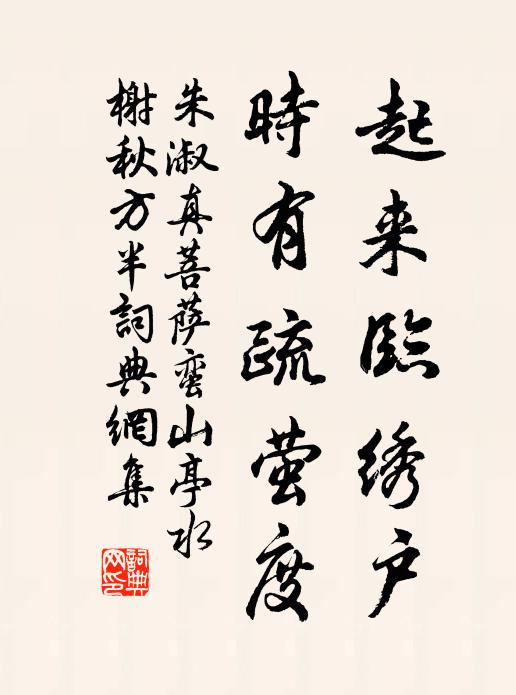 起来臨绣户
時有疏萤度
朱淑真菩萨蛮山亭水
榭秋方半詞典網集
詞典网印